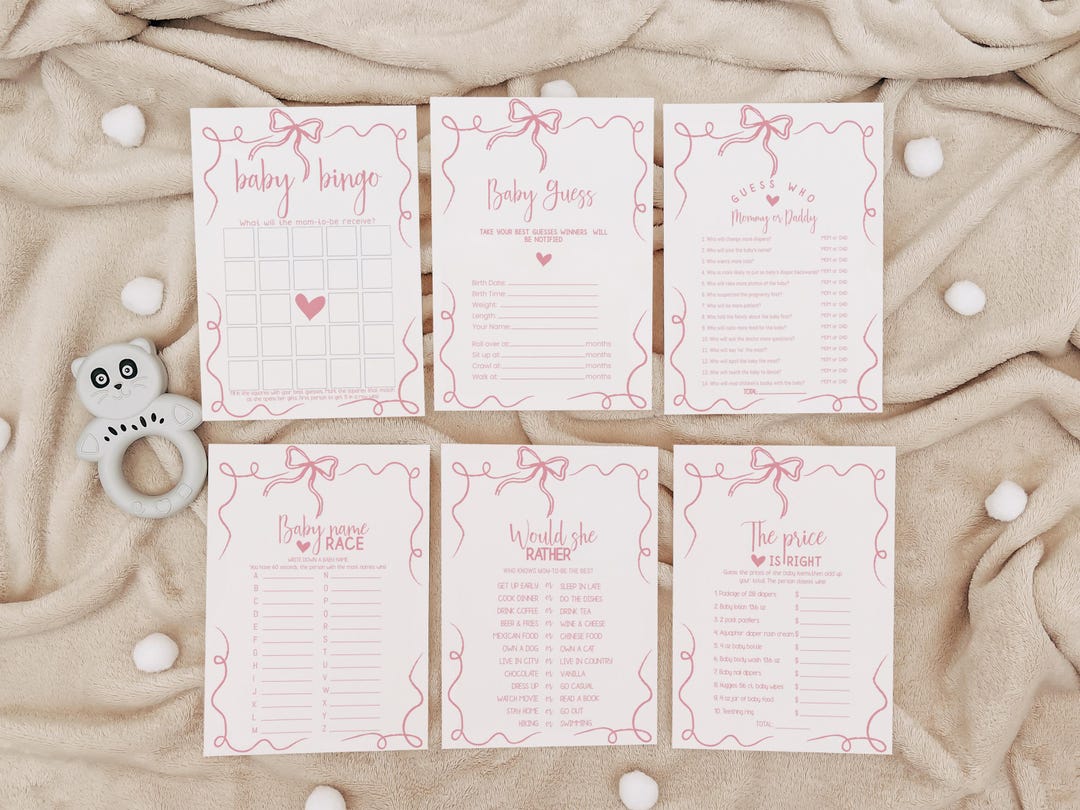 baby bingo
What will the mom-to-be receive?
Fill in the squares with your best guesses. Mark the squares that match
as she opens her gifts. First person to get 5 in a row wins!
Baby Guess
TAKE YOUR BEST GUESSES WINNERS WILL
BE NOTIFIED
Birth Date:
Birth Time:
Weight:
Length:
Your Name:
Roll over at: months
Sit up at: months
Crawl at: months
Walk at: months
GUESS WHO
Mommy or Daddy
1. Who will change more diapers? MOM or DAD
2. Who will pick the baby's name? MOM or DAD
3. Who wants more kids? MOM or DAD
4. Who is more likely to put on baby's diaper backwards? MOM or DAD
5. Who will take more photos of the baby? MOM or DAD
6. Who suspected the pregnancy first? MOM or DAD
7. Who will be more patient? MOM or DAD
8. Who told the family about the baby first? MOM or DAD
9. Who will make more food for the baby? MOM or DAD
10. Who will ask the doctor more questions? MOM or DAD
11. Who will say "no" the most? MOM or DAD
12. Who will spoil the baby the most? MOM or DAD
13. Who will teach the baby to dance? MOM or DAD
14. Who will read children's books with the baby? MOM or DAD
TOTAL:
Baby name
RACE
WRITE DOWN A BABY NAME.
You have 60 seconds, the person with the most names wins
A N
B O
C P
D Q
E R
F S
G T
H U
I V
J W
K X
L Y
M Z
Would she
RATHER
WHO KNOWS MOM-TO-BE THE BEST
GET UP EARLY or SLEEP IN LATE
COOK DINNER or DO THE DISHES
DRINK COFFEE or DRINK TEA
BEER & FRIES or WINE & CHEESE
MEXICAN FOOD or CHINESE FOOD
OWN A DOG or OWN A CAT
LIVE IN CITY or LIVE IN COUNTRY
CHOCOLATE or VANILLA
DRESS UP or GO CASUAL
WATCH MOVIE or READ A BOOK
STAY HOME or GO OUT
HIKING or SWIMMING
The price
IS RIGHT
Guess the prices of the baby items,then add up
your total. The person closest wins!
1. Package of 28 diapers $
2. Baby lotion 13.6 oz $
3. 2 pack pacifiers $
4. Aquaphor diaper rash cream $
5. 4 oz baby bottle $
6. Baby body wash 13.6 oz $
7. Baby nail clippers $
8. Huggies 56 ct. baby wipes $
9. 4 oz jar of baby food $
10. Teething ring $
TOTAL: